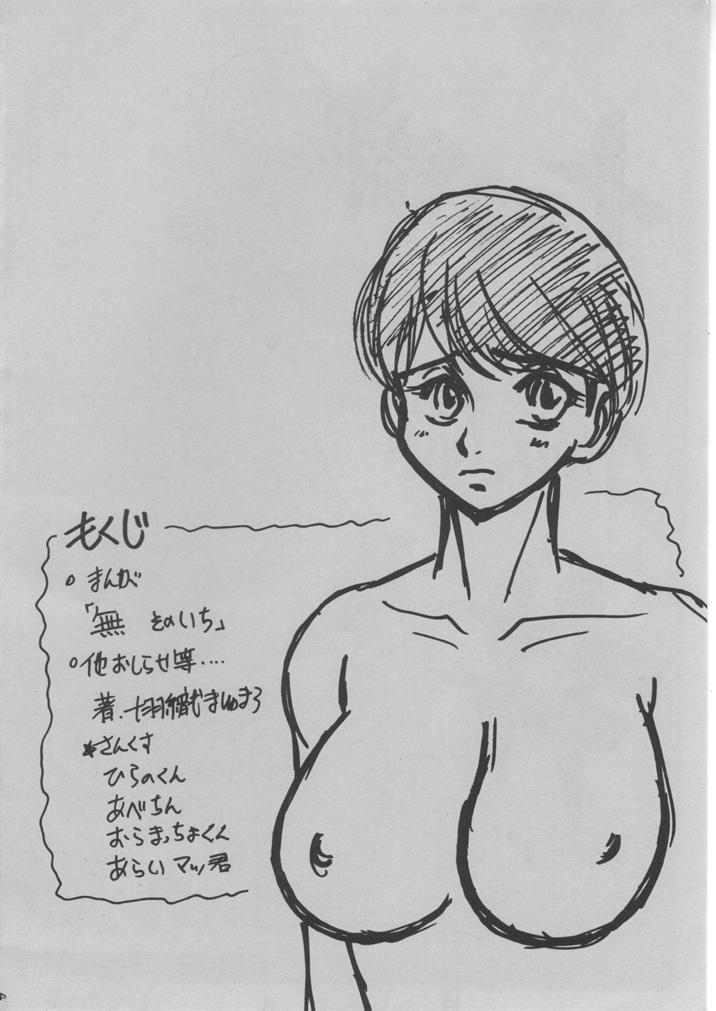 もくじ
○ まんが
「無 そのいち」
○他 おしらせ等‥‥
著.十羽織ましゅまろ
*さんくす
ひらのくん
あべちん
むらまっちょくん
あらいマッ君